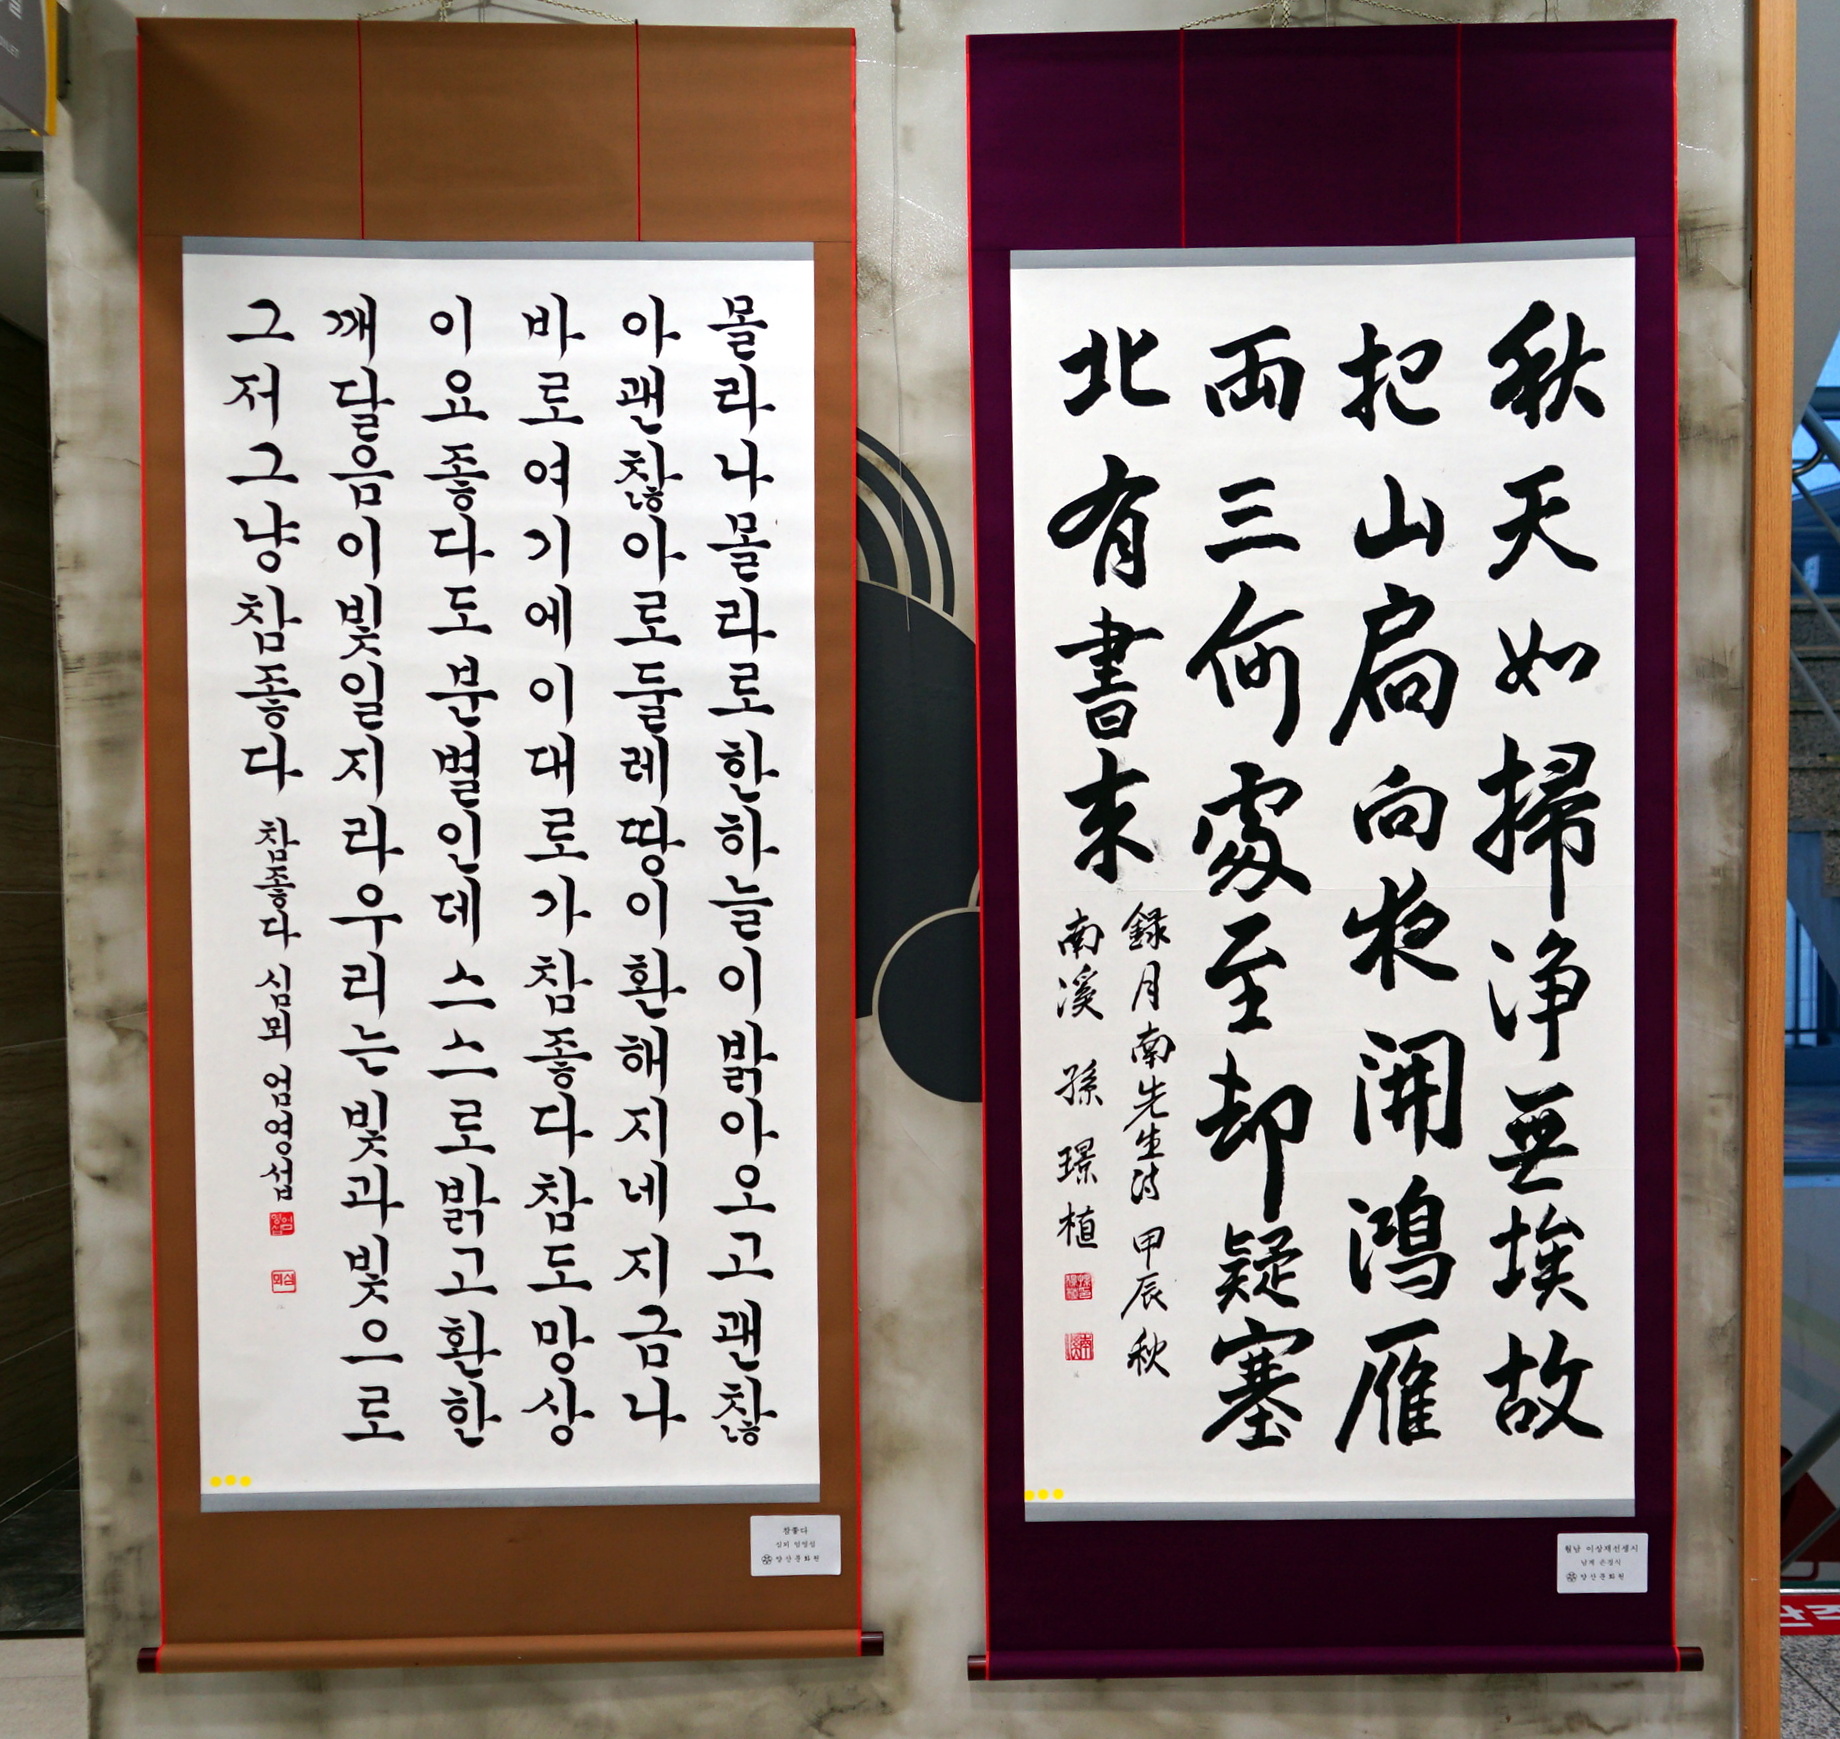 몰라나몰라로한하늘이밝아오고괜찮
아괜찮아로둘레땅이환해지네지금나
바로여기에이대로가참좋다참도망상
이요좋다도분별인데스스로밝고환한
깨달음이빛일지라우리는빛과빛으로
그저그냥참좋다 참좋다 심뫼 엄영섭
참좋다
심뫼 엄영섭
양산문화원
秋天如掃淨無埃故
把山扃向夜開鴻雁
両三何處至却疑塞
北有書来
録月南先生詩 甲辰秋
南溪 孫璟植
월남 이상재선생시
남계 손경식
양산문화원